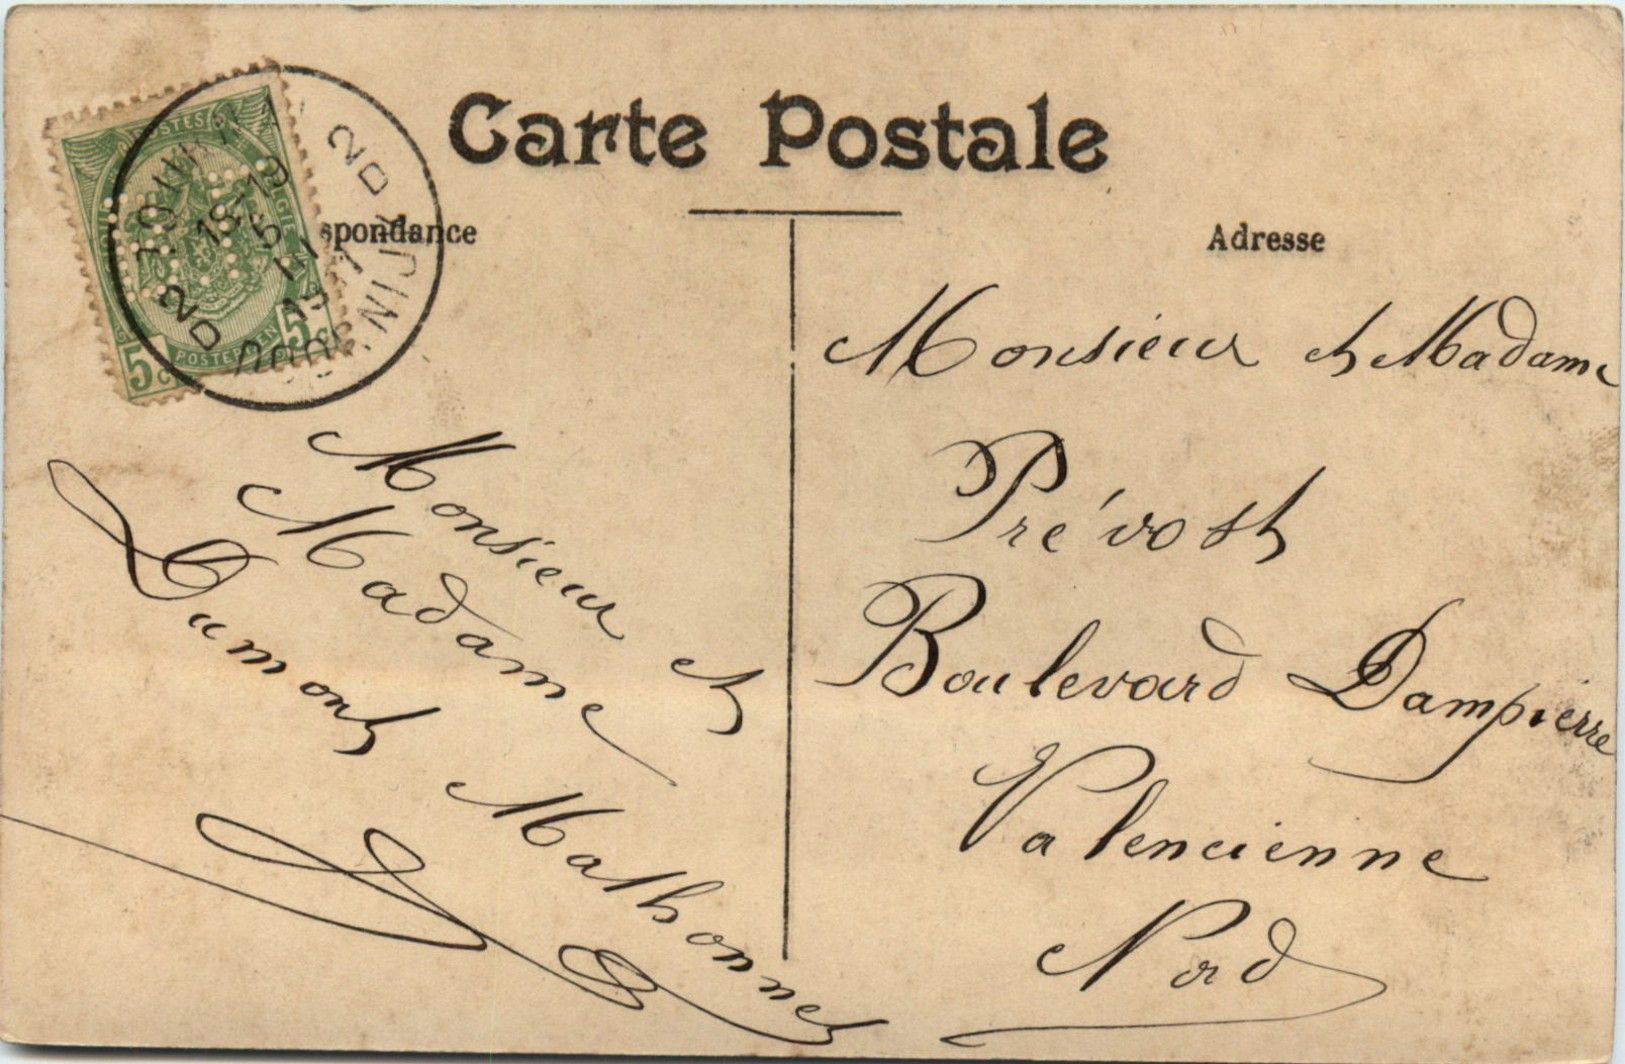 Carte Postale
spondance
Adresse
POSTES
5c
POSTERIJEN
5c
TOURNAI
18-19
5
DOORNIJK
Monsieur et
Madame
Dumont Mathonnet
Monsieur et Madame
Prévost
Boulevard Dampierre
Valencienne
Nord